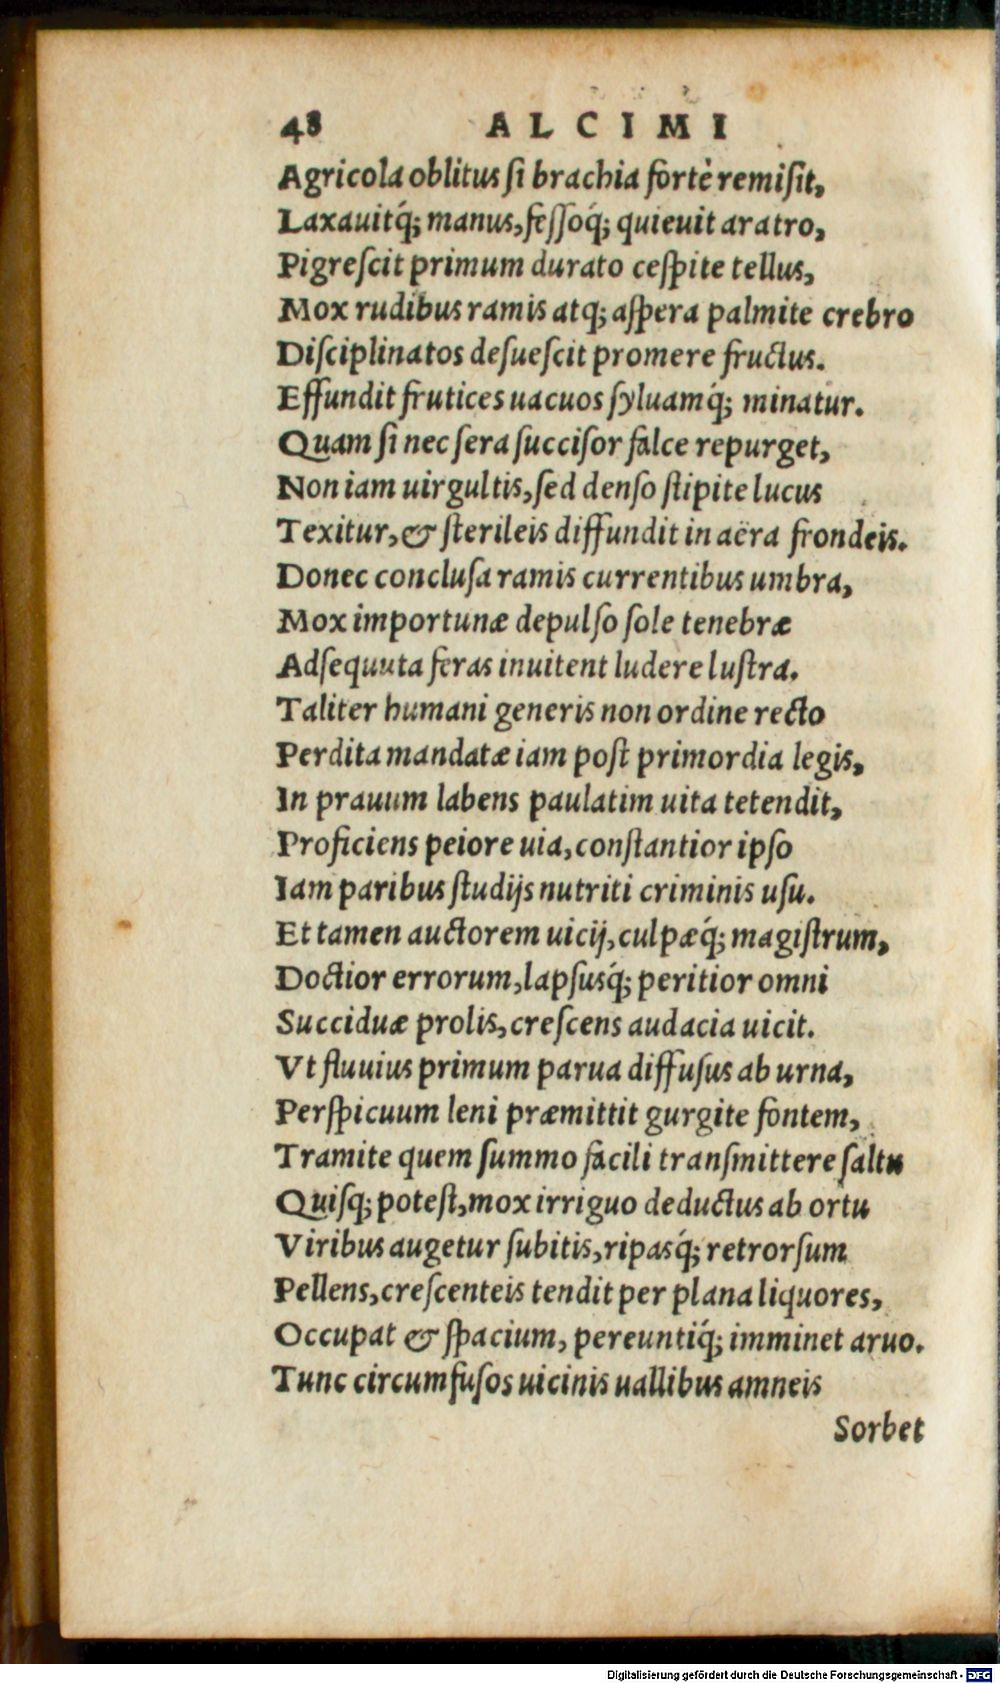 48 ALCIMI
Agricola oblitus ſi brachia fortè remiſit,
Laxauitq́; manus, feſſoq́; quieuit aratro,
Pigreſcit primum durato ceſpite tellus,
Mox rudibus ramis atq; aſpera palmite crebro
Diſciplinatos deſueſcit promere fructus.
Effundit frutices uacuos ſyluamq́; minatur.
Quam ſi nec ſera ſucciſor falce repurget,
Non iam uirgultis, ſed denſo ſtipite lucus
Texitur, & ſterileis diffundit in aëra frondeis.
Donec concluſa ramis currentibus umbra,
Mox importunæ depulſo ſole tenebræ
Adſequuta feras inuitent ludere luſtra.
Taliter humani generis non ordine recto
Perdita mandatæ iam poſt primordia legis,
In prauum labens paulatim uita tetendit,
Proficiens peiore uia, conſtantior ipſo
Iam paribus ſtudijs nutriti criminis uſu.
Et tamen auctorem uicij, culpæq́; magiſtrum,
Doctior errorum, lapſusq́; peritior omni
Succiduæ prolis, creſcens audacia uicit.
Vt fluuius primum parua diffuſus ab urna,
Perſpicuum leni præmittit gurgite fontem,
Tramite quem ſummo facili tranſmittere ſaltu
Quiſq; poteſt, mox irriguo deductus ab ortu
Viribus augetur ſubitis, ripasq́; retrorſum
Pellens, creſcenteis tendit per plana liquores,
Occupat & ſpacium, pereuntiq́; imminet aruo.
Tunc circumfuſos uicinis uallibus amneis
Sorbet
Digitalisierung gefördert durch die Deutsche Forschungsgemeinschaft - DFG